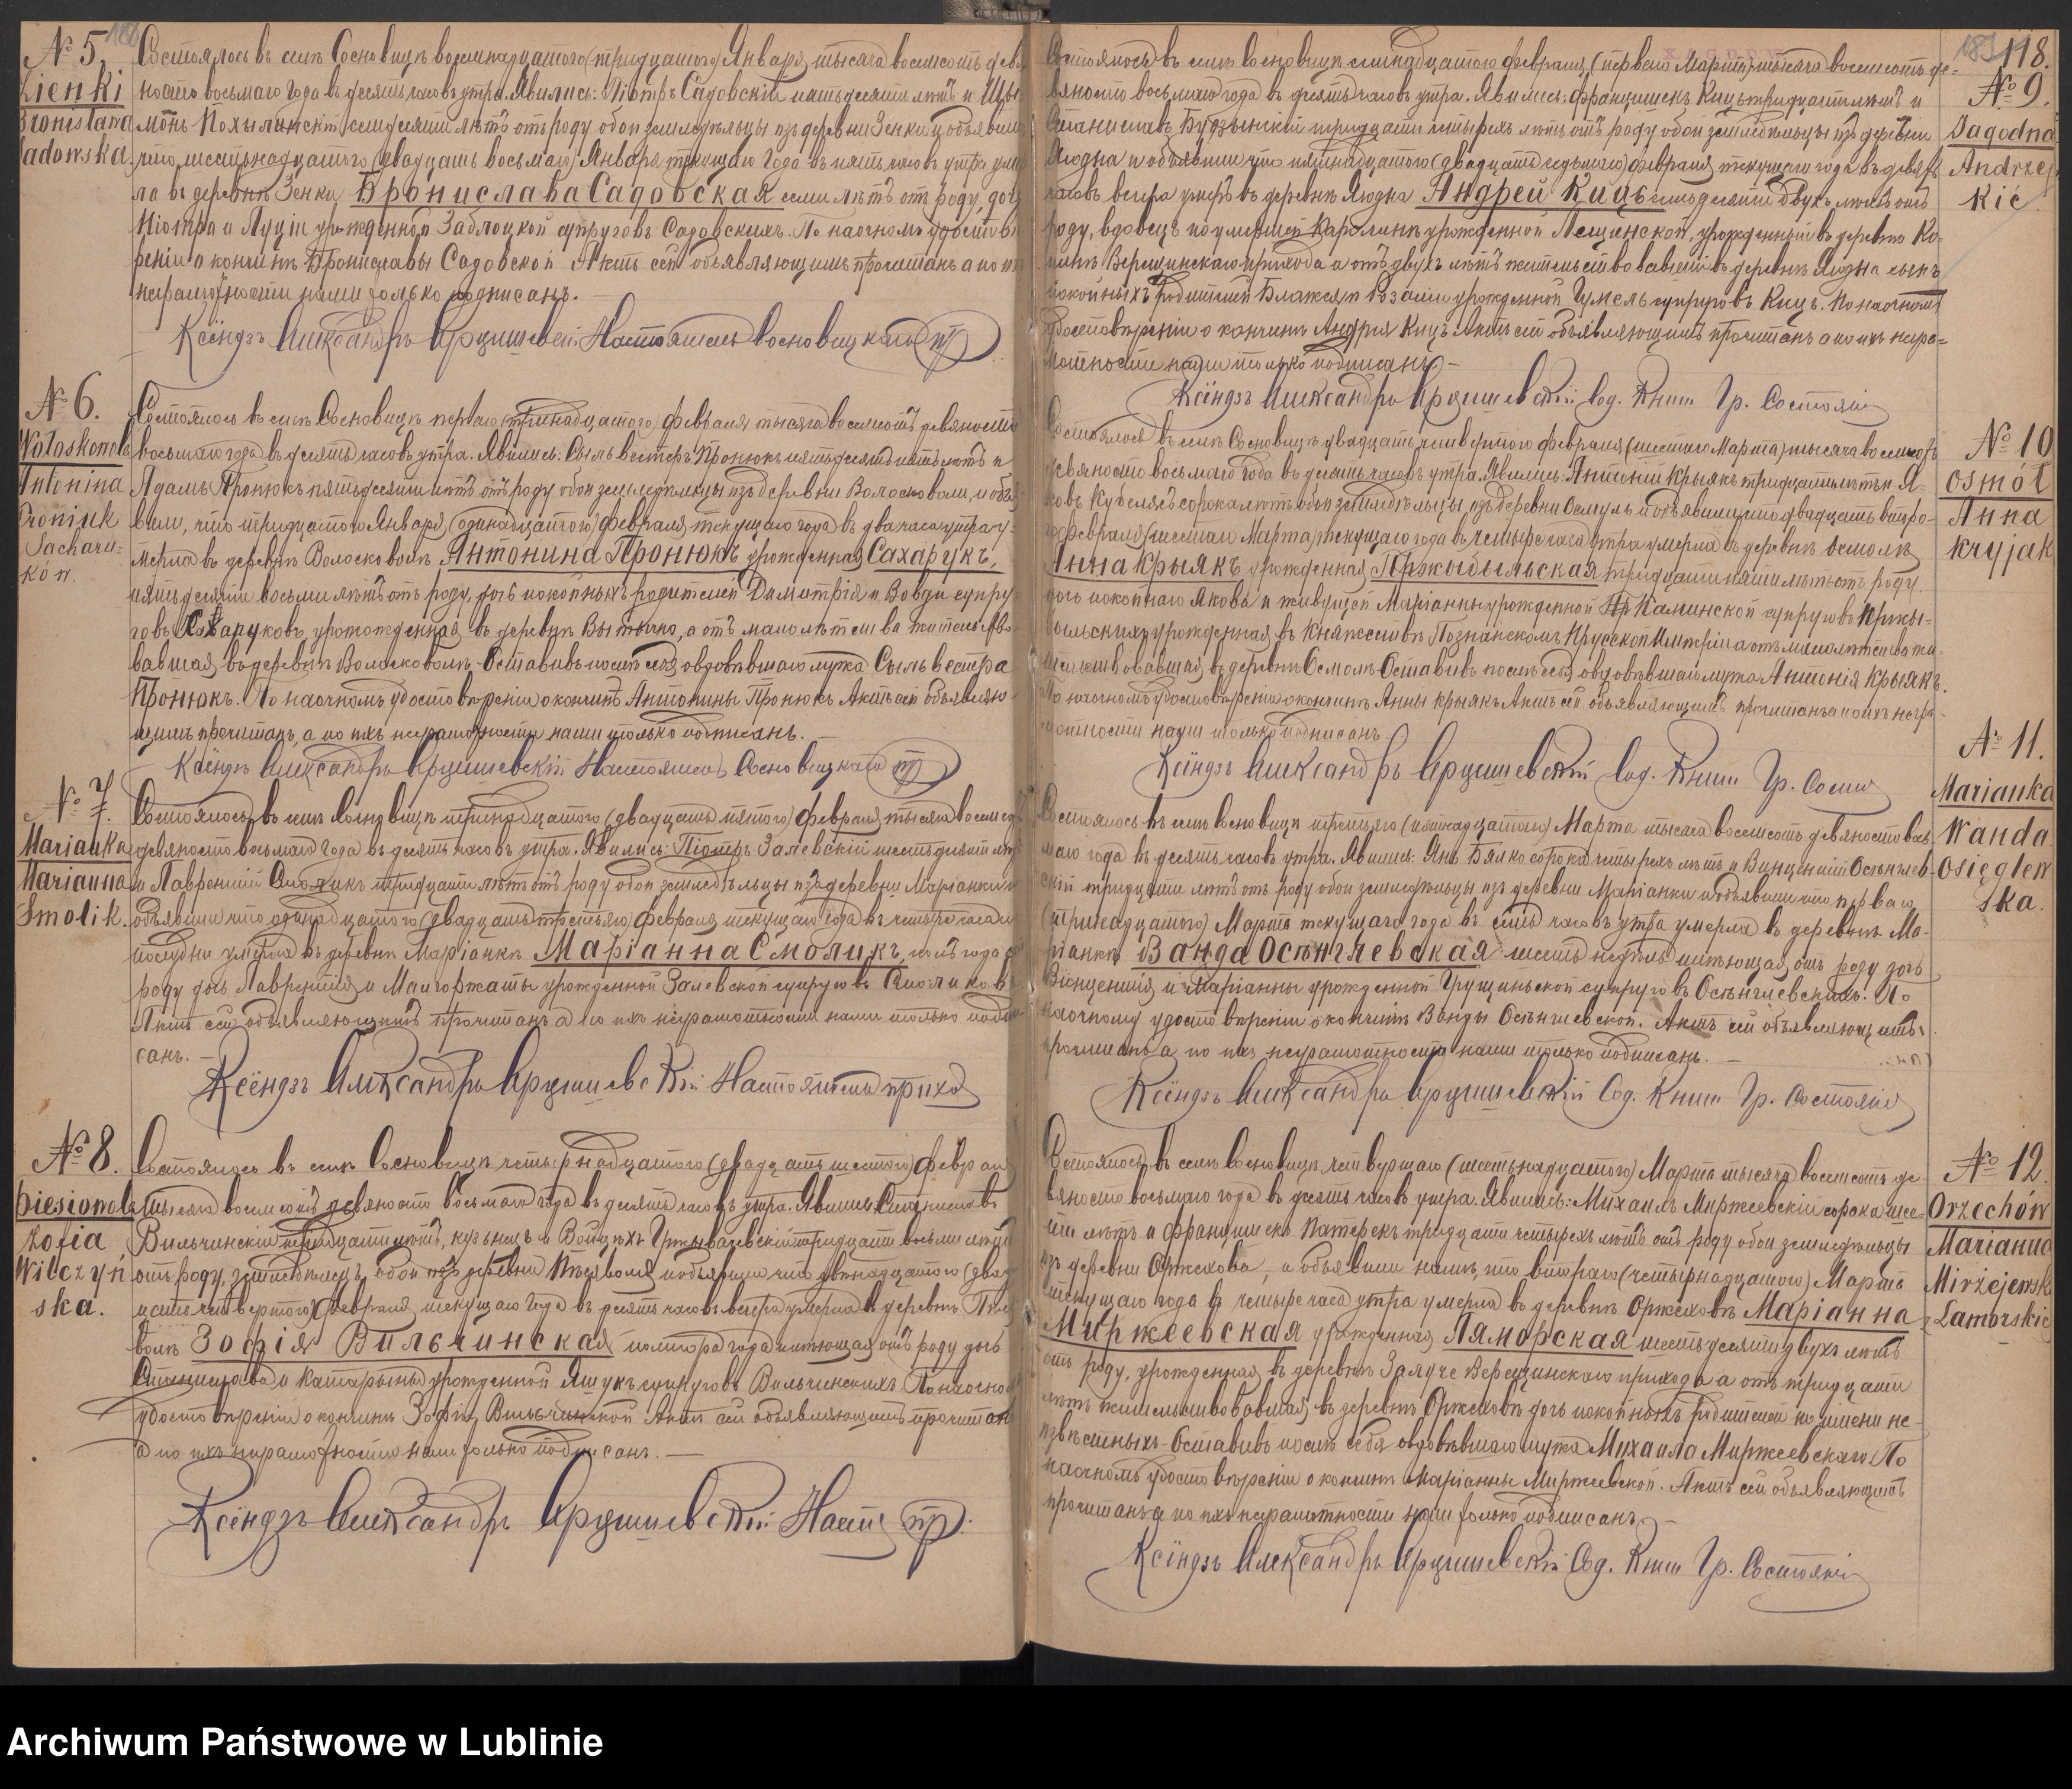 № 5.
Zienki
Bronisława
Sadowska.
Состоялось въ селѣ Сосновицѣ восемнадцатого (тридцатого) Января, тысяча восемсотъ девя
носто восьмаго года въ десять часовъ утра. Явились: Піотръ Садовскій лѣтъ и
монъ лѣтъ отъ роду обои земледѣльцы изъ деревни Зенки, и объявили
что шестьнадцатого (двадцать восьмаго) Января текущаго года въ пять часовъ утра умер
ла въ деревнѣ Зенки Брониславa Садовская семи лѣтъ отъ роду, дочь
Піотра и Луціи урожденной Заблоцкой супруговъ Садовскихъ. По наочномъ удостовѣ
реніи о кончинѣ Брониславы Садовской Актъ сей объявляющимъ прочитанъ а по ихъ
неграмотности нами только подписанъ. —
Ксёндзъ Александръ Настоятель Сосновицкаго пр
№ 6.
Wołoskowola
Antonina
Proniuk
Sacharu-
ków.
Состоялось въ селѣ Сосновицѣ перваго (тринадцатого) февраля тысяча восемсотъ девяносто
восьмаго года въ десять часовъ утра. Явились: Сыльвестеръ Пронюкъ лѣтъ и
Адамъ Пронюкъ лѣтъ отъ роду обои земледѣльцы изъ деревни Волосковоли, и объя
вили, что тридцатого Января, (одинадцатого) февраля, текущаго года въ два часа утра у-
мерла въ деревнѣ Волосковолѣ Антонина Пронюкъ урожденная Сахарукъ,
пятьдесятъ восьми лѣтъ отъ роду, дочь покойныхъ родителей Димитрія и Вовди супру
говъ Сахаруковъ, урожденная въ деревнѣ Вытычно, а отъ малолѣтства жительство
вавшая въ деревнѣ Волосковолѣ. Оставивъ послѣ себя овдовѣвшаго мужа Сыльвестра
Пронюкъ. По наочномъ удостовѣреніи о кончинѣ Антонины Пронюкъ Актъ сей объявляю-
щимъ прочитанъ, а по ихъ неграмотности нами только подписанъ. —
Ксёндзъ Александръ Настоятель Сосновицкаго пр
№ 7.
Marianka
Marianna
Smolik.
Состоялось въ селѣ Сосновицѣ тринадцатого (двадцать пятого) февраля, тысяча восемсотъ
девяносто восьмаго года въ десять часовъ утра. Явились: Піотръ Залевскій шестьдесятъ лѣтъ
и Лаврентій Смоликъ тридцати лѣтъ отъ роду обои земледѣльцы изъ деревни Маріанки и
объявили что одинадцатого (двадцать третьяго) февраля текущаго года въ четыре часа по
полудни умерла въ деревнѣ Маріанкѣ Маріанна Смоликъ, полъ года отъ
роду дочь Лаврентія и Малгоржаты урожденной Залевской супруговъ Смоликовъ
Актъ сей объявляющимъ прочитанъ а по ихъ неграмотности нами только подпи
санъ. —
Ксёндзъ Александръ Настоятель прихо
№ 8.
Piesiowola
Zofia
Wilczyń
ska.
Состоялось въ селѣ Сосновицѣ четырнадцатого (двадцать шестого) февраля
тысяча восемсотъ девяносто восьмаго года въ десять часовъ утра. Явились: Станиславъ
Вильчинскій тридцати лѣтъ, кузнецъ и Войцѣхъ тридцати восьми лѣтъ
отъ роду, земледѣлецъ, обои изъ деревни Пѣсяволя и объявили что двѣнадцатого (двад
цать четвертого) февраля текущаго года въ десять часовъ вечера умерла въ деревнѣ Пѣсе
волѣ Зофія Вильчинская полтора года имѣющая отъ роду дочь
Станислава и Катарыны урожденной Яшукъ супруговъ Вильчинскихъ. По наочно
удостовѣреніи о кончинѣ Зофіи Вильчинской Актъ сей объявляющимъ прочитанъ
а по ихъ неграмотности нами только подписанъ. —
Ксёндзъ Александръ Наст пр.
118.
№ 9.
Jagodna
Andrzej
Kić
Состоялось въ селѣ Сосновицѣ семнадцатого февраля, (перваго Марта) тысяча восемсотъ де-
вяносто восьмаго года въ десять часовъ утра. Явились: Францишекъ Кицъ тридцати лѣтъ и
Станиславъ Будзынскій тридцати четырехъ лѣтъ отъ роду обои земледѣльцы изъ деревни
Ягодна и объявили что пятнадцатого (двадцать седьмого) февраля текущаго года въ девять
часовъ вечера умеръ въ деревнѣ Ягодна Андрей Кицъ семьдесятъ двухъ лѣтъ отъ
роду, вдовецъ по умершей Каролинѣ урожденной Лещинской, урожденный въ деревнѣ Ко-
Верещинскаго прихода а отъ двухъ лѣтъ жительствовавшій въ деревнѣ Ягодна сынъ
покойныхъ родителей Блажея и Розаліи урожденной супруговъ Кицъ. По наочномъ
удостовѣреніи о кончинѣ Андрея Кицъ Актъ сей объявляющимъ прочитанъ а по ихъ негра-
мотности нами только подписанъ. —
Ксёндзъ Александръ Сод. Книги Гр. Состоянія
№ 10
Osmół
Anna
Kryjak
Состоялось въ селѣ Сосновицѣ двадцать четвертого февраля (шестого Марта) тысяча восемсотъ
девяносто восьмаго года въ десять часовъ утра. Явились: Антоній Крыякъ тридцати лѣтъ и Я-
ковъ сорока лѣтъ обои земледѣльцы изъ деревни Осмулъ и объявили что двадцать второ-
го февраля (шестаго Марта) текущаго года въ четыре часа утра умерла въ деревнѣ Осмолѣ
Анна Крыякъ урожденная Пржыбыльская тридцати пяти лѣтъ отъ роду,
дочь покойнаго Якова и живущей Маріанны урожденной Калинской супруговъ Пржы-
быльскихъ, урожденная въ Княжествѣ Познанскомъ Прусской Имперіи а отъ малолѣтства жи-
тельствовавшая въ деревнѣ Осмолѣ. Оставивъ послѣ себя овдовѣвшаго мужа Антонія Крыякъ.
По наочномъ удостовѣреніи о кончинѣ Анны Крыякъ Актъ сей объявляющимъ прочитанъ а по ихъ негра-
мотности нами только подписанъ.
Ксёндзъ Александръ Сод. Книги Гр. Состо
№ 11.
Marianka
Wanda
Osięglew
ska.
Состоялось въ селѣ Сосновицѣ третьяго (пятнадцатого) Марта тысяча восемсотъ девяносто вось-
маго года въ десять часовъ утра. Явились: Янъ Бялко сорока четырехъ лѣтъ и Винцентій Осѣнглев-
скій тридцати лѣтъ отъ роду обои земледѣльцы изъ деревни Маріанки и объявили что перваго
(тринадцатого) Марта текущаго года въ семь часовъ утра умерла въ деревнѣ Ма-
ріанкѣ Ванда Осѣнглевская шесть недѣль имѣющая отъ роду дочь
Винцентія и Маріанны урожденной супруговъ Осѣнглевскихъ. По
наочному удостовѣреніи о кончинѣ Ванды Осѣнглевской. Актъ сей объявляющимъ
прочитанъ а по ихъ неграмотности нами только подписанъ. —
Ксёндзъ Александръ Сод. Книги Гр. Состоянія
№ 12.
Orzechów
Marianna
Mirżejewska
z Lamorskich
Состоялось въ селѣ Сосновицѣ четвертаго (шестьнадцатого) Марта тысяча восемсотъ де-
вяносто восьмаго года въ десять часовъ утра. Явились: Михаилъ Миржеевскій сорока шес-
ти лѣтъ и Францишекъ Патерекъ тридцати четырехъ лѣтъ отъ роду обои земледѣльцы
изъ деревни Оржехова, и объявили намъ, что втораго (четырнадцатого) Марта
текущаго года въ четыре часа утра умерла въ деревнѣ Оржеховѣ Маріанна
Миржеевская урожденная Ляморская шестьдесятъ двухъ лѣтъ
отъ роду, урожденная въ деревнѣ Залуче Верещинскаго прихода а отъ тридцати
лѣтъ жительствовавшая въ деревнѣ Оржеховѣ дочь покойныхъ родителей по имени не-
извѣстныхъ. Оставивъ послѣ себя овдовѣвшаго мужа Михаила Миржеевскаго. По
наочномъ удостовѣреніи о кончинѣ Маріанны Миржеевской. Актъ сей объявляющимъ
прочитанъ а по ихъ неграмотности нами только подписанъ. —
Ксёндзъ Александръ Сод. Книги Гр. Состоянія
Archiwum Państwowe w Lublinie